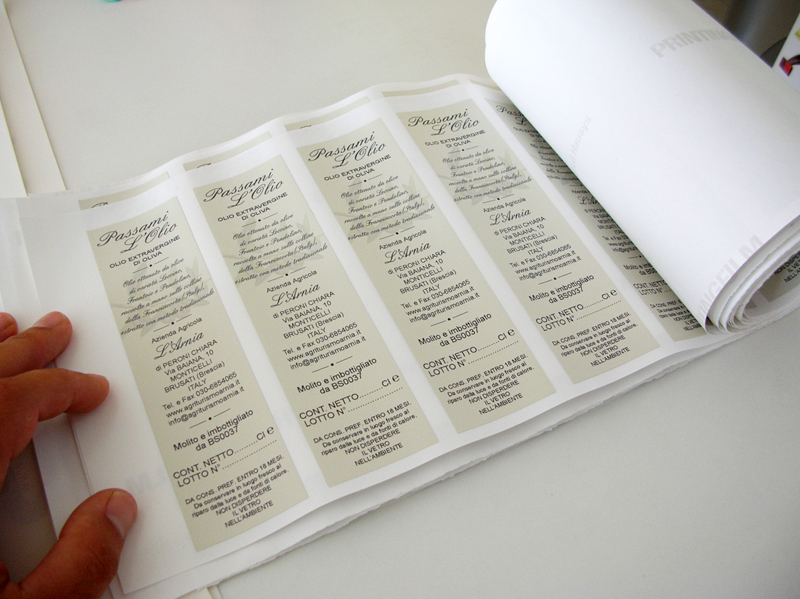 Passami
L'Olio
OLIO EXTRAVERGINE
DI OLIVA
Olio ottenuto da olive
di varietà Leccino,
Frantoio e Pendolino,
raccolte a mano sulle colline
della Franciacorta (Italy),
estratto con metodo tradizionale
Azienda Agricola
L'Arnia
di PERONI CHIARA
Via BAIANA, 10
MONTICELLI
BRUSATI (Brescia)
ITALY
Tel. e Fax 030-6854065
www.agriturismoarnia.it
info@agriturismoarnia.it
Molito e imbottigliato
da BS0037
CONT. NETTO..........Cl e
LOTTO N°....................
DA CONS. PREF. ENTRO 18 MESI.
Da conservare in luogo fresco al
riparo dalla luce e da fonti di calore.
NON DISPERDERE
IL VETRO
NELL'AMBIENTE
Passami
L'Olio
OLIO EXTRAVERGINE
DI OLIVA
Olio ottenuto da olive
di varietà Leccino,
Frantoio e Pendolino,
raccolte a mano sulle colline
della Franciacorta (Italy),
estratto con metodo tradizionale
Azienda Agricola
L'Arnia
di PERONI CHIARA
Via BAIANA, 10
MONTICELLI
BRUSATI (Brescia)
ITALY
Tel. e Fax 030-6854065
www.agriturismoarnia.it
info@agriturismoarnia.it
Molito e imbottigliato
da BS0037
CONT. NETTO..........Cl e
LOTTO N°....................
DA CONS. PREF. ENTRO 18 MESI.
Da conservare in luogo fresco al
riparo dalla luce e da fonti di calore.
NON DISPERDERE
IL VETRO
NELL'AMBIENTE
Passami
L'Olio
OLIO EXTRAVERGINE
DI OLIVA
Olio ottenuto da olive
di varietà Leccino,
Frantoio e Pendolino,
raccolte a mano sulle colline
della Franciacorta (Italy),
estratto con metodo tradizionale
Azienda Agricola
L'Arnia
di PERONI CHIARA
Via BAIANA, 10
MONTICELLI
BRUSATI (Brescia)
ITALY
Tel. e Fax 030-6854065
www.agriturismoarnia.it
info@agriturismoarnia.it
Molito e imbottigliato
da BS0037
CONT. NETTO..........Cl e
LOTTO N°....................
DA CONS. PREF. ENTRO 18 MESI.
Da conservare in luogo fresco al
riparo dalla luce e da fonti di calore.
NON DISPERDERE
IL VETRO
NELL'AMBIENTE
Passami
L'Olio
OLIO EXTRAVERGINE
DI OLIVA
Olio ottenuto da olive
di varietà Leccino,
Frantoio e Pendolino,
raccolte a mano sulle colline
della Franciacorta (Italy),
estratto con metodo tradizionale
Azienda Agricola
L'Arnia
di PERONI CHIARA
Via BAIANA, 10
MONTICELLI
BRUSATI (Brescia)
ITALY
Tel. e Fax 030-6854065
www.agriturismoarnia.it
info@agriturismoarnia.it
Molito e imbottigliato
da BS0037
CONT. NETTO..........Cl e
LOTTO N°....................
DA CONS. PREF. ENTRO 18 MESI.
Da conservare in luogo fresco al
riparo dalla luce e da fonti di calore.
NON DISPERDERE
IL VETRO
NELL'AMBIENTE